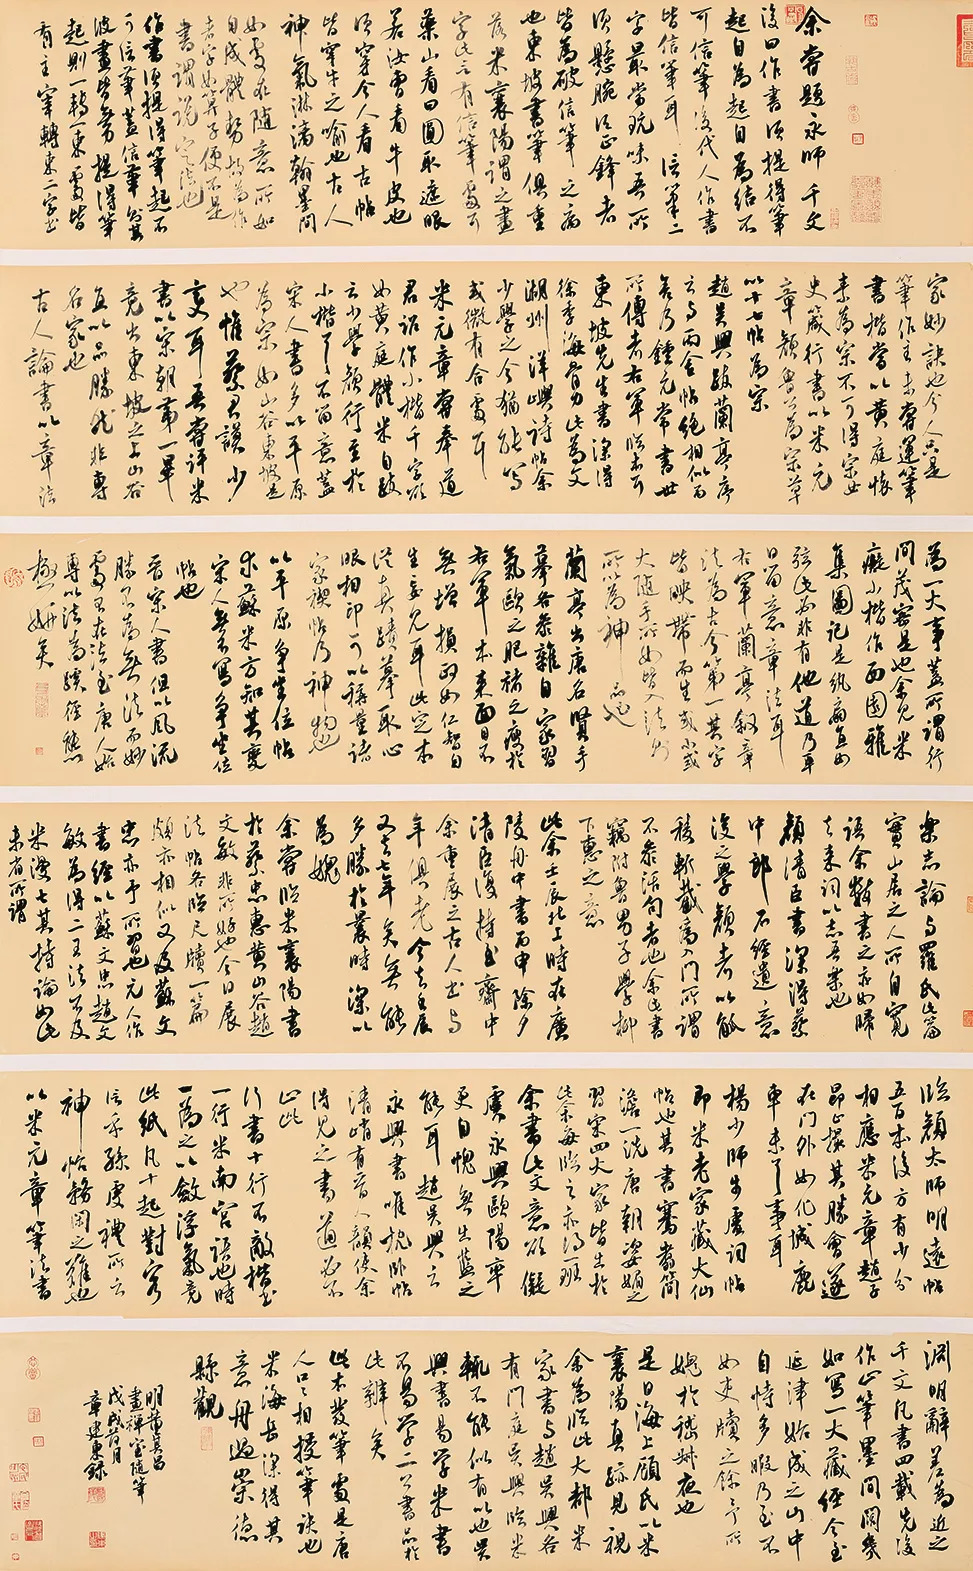 余嘗題永師千文
後曰作書須提得筆
起自為起自為結不
可信筆後代人作書
皆信筆耳信筆二
字最當玩味吾所
須懸腕須正鋒者
皆為破信筆之病
也東坡書筆俱重
落米襄陽謂之畫
字此言有信筆處耳
藥山看曰圖取遮眼
若汝曹看牛皮也
須穿今人看古帖
皆穿牛之喻也古人
神氣淋漓翰墨間
妙處在隨意所如
自成體勢故為作
者字如算子便不是
書謂說定法也
作書須提得筆起不
可信筆蓋信筆則其
波畫皆無力提得筆
起則一轉一束處皆
有主宰轉束二字書
家妙訣也今人只是
筆作主未嘗運筆
書楷當以黃庭懷
素為宗不可得宗女
史箴行書以米元
章顏魯公為宗草
以十七帖為宗
趙吳興跋蘭亭序
云與丙舍帖絕相似丙
舍乃鍾元常書世
所傳者右軍臨本耳
東坡先生書深得
徐季海骨力此為文
湖州洋嶼詩帖余
少學之今猶能寫
或微有合處耳
米元章嘗奉道
君詔作小楷千字欲
如黃庭體米自跋
云少學顏行至於
小楷了不留意蓋
宋人書多以平原
為宗如山谷東坡是
也惟蔡君謨少
變耳吾嘗評米
書以宋朝第一畢
竟出東坡之上山谷
直以品勝然非專
名家也
古人論書以章法
為一大事蓋所謂行
間茂密是也余見米
癡小楷作西園雅
集圖記是紈扇其直如
弦此必非有他道乃平
日留意章法耳
右軍蘭亭敘章
法為古今第一其字
皆映帶而生或小或
大隨手所如皆入法則
所以為神品也
蘭亭出唐名賢手
摹各參雜自家習
氣歐之肥褚之瘦於
右軍本來面目不
無增損正如仁智自
生妄見耳此定本
從真蹟摹取心
眼相印可以稱量諸
家禊帖乃神物也
以平原爭坐位帖
求蘇米方知其變
宋人無不寫爭坐位
帖也
晉宋人書但以風流
勝不為無法而妙
處不在法至唐人始
專以法為蹊徑盡態
極妍矣
樂志論與羅氏此篇
實山居之人所自寬
語余數書之亦如歸
去來詞以志吾樂也
顏清臣書深得蔡
中郎石經遺意
後之學顏者以觚
稜斬截為入門所謂
不參活句者也余此書
竊附魯男子學柳
下惠之意
此余壬辰北上時在廣
陵舟中書丙申除夕
清臣復持至齋中
余重展之古人書與
年俱老今去壬辰
又七年矣無能
多勝於曩時深以
為媿
余嘗臨米襄陽書
於蔡忠惠黃山谷趙
文敏非所好也今日展
法帖各臨尺牘一篇
頗亦相似又及蘇文
忠亦予所習也元人作
書經以蘇文忠趙文
敏為得二王法不及
米漫士其持論如此
未省所謂
臨顏太師明遠帖
五百本後方有少分
相應米元章趙子
昂止撮其勝會遂
在門外如化城鹿
車未了事耳
楊少師步虛詞帖
即米老家藏大仙
帖也其書騫翥簡
澹一洗唐朝姿媚之
習宋四大家皆出於
此余每臨之亦得一班
余書此文意欲擬
虞永興歐陽率
更自愧無出藍之
能耳趙吳興云
永興書唯枕臥帖
清峭有晉人韻使余
得見之書道必不
止此
行書十行不敵楷書
一行米南宮語也時
一為之以斂浮氣竟
此紙凡十起對客
信手孫虔禮所云
神怡務閑之難也
以米元章筆法書
淵明辭差為近之
千文凡書四載先後
作止筆墨間闊幾
如寫一大藏經今至
延津始成之山中
自恃多暇乃至不
如吏牘之餘予所
媿於嵇叔夜也
是日海上顧氏以米
襄陽真跡見視
余為臨此大都米
家書與趙吳興各
有門庭吳興臨米
輒不能似有以也吳
興書易學米書
不易學二公書品於
此辨矣
此本發筆處是唐
人口口相授筆訣也
米海岳深得其
意舟過崇德
縣觀
明董其昌
畫禪室隨筆
戊戌荷月
章建東錄